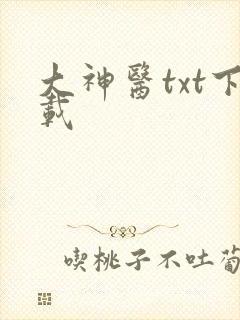 大神醫txt下
載
喫桃子不吐葡